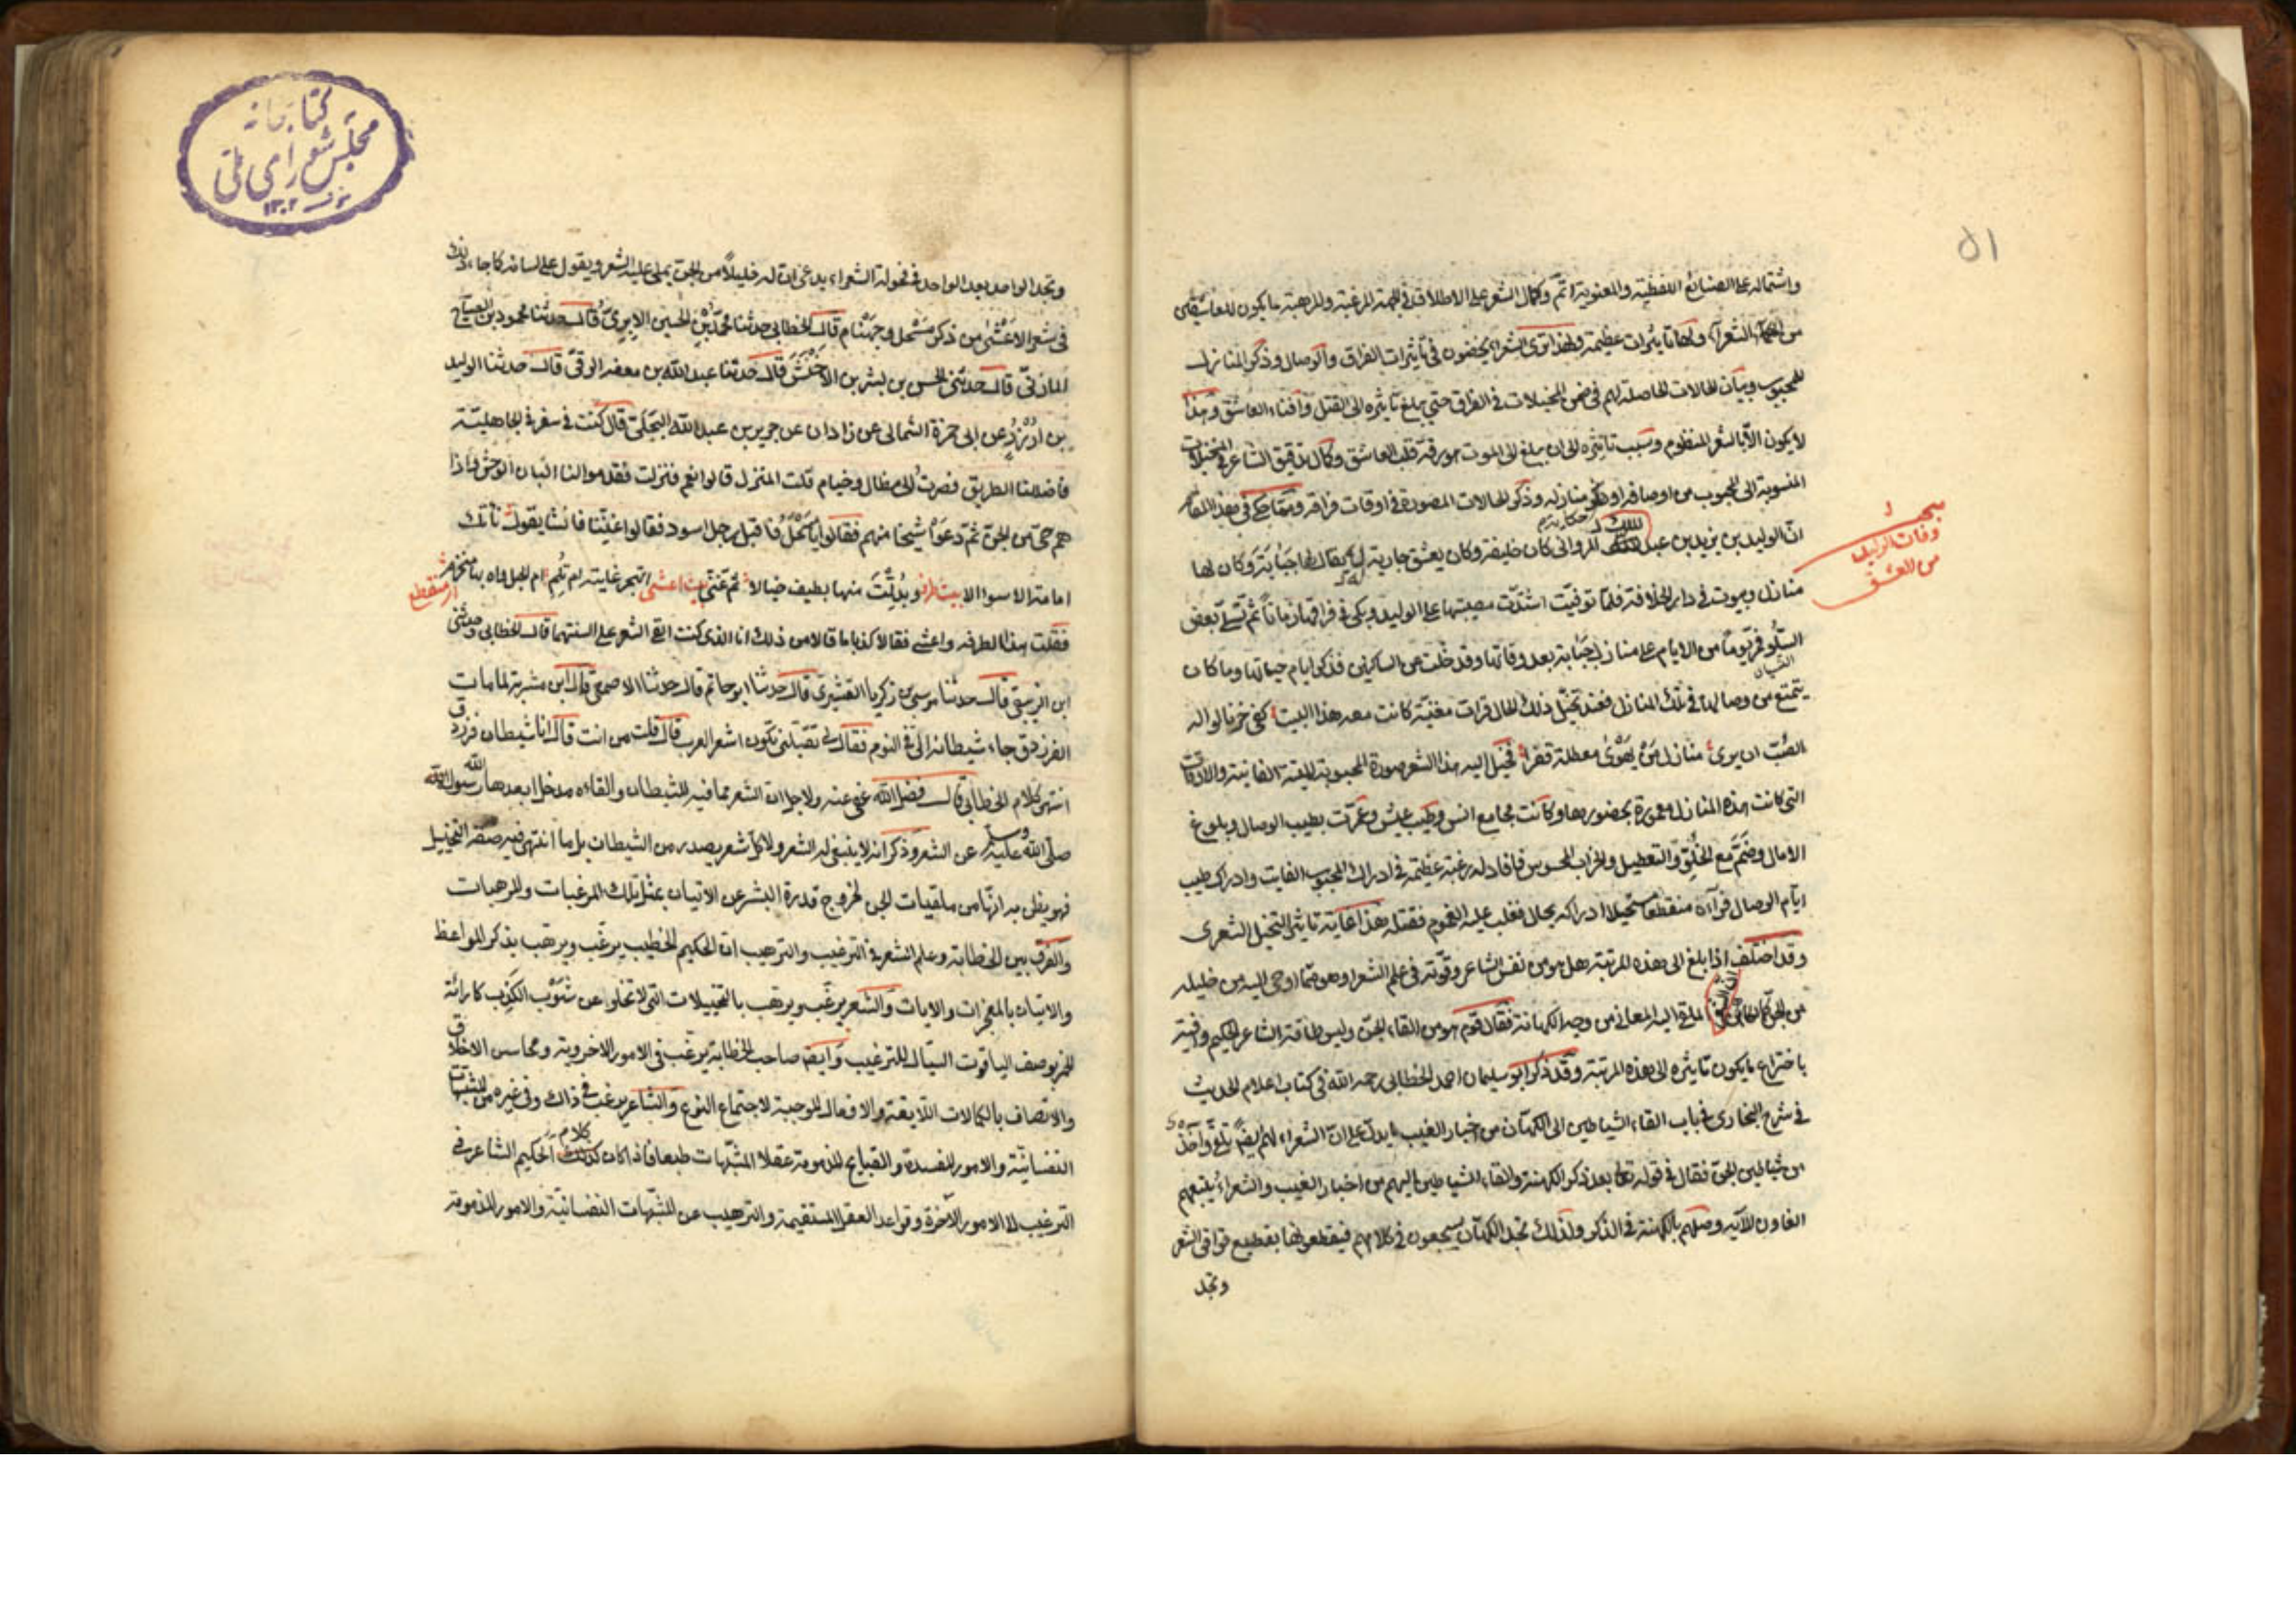 ٥١
واشتماله على الصنايع اللفظية والمعنوية اتم وكمال الشعر على الاطلاق في المرغبة والمرهبة ما يكون للعاشقين
من الشعرآء ولها تاثيرات عظيمة ولهذا ترى الشعراء يخضون في تأثيرات الفراق والوصال وذكر المنازل
للمحبوب وبيان الحالات الحاصلة لهم في ضمن المخيلات في الفراق حتى يبلغ تاثيره الى القتل وافناء العاشق وهذا
لا يكون الا بالشعر المنظوم وسبب تاثيره الى ان يبلغ الى الموت هو رقة قلب العاشق وكمال تدقيق الشاعر في المخيلات
المنسوبة الى المحبوب من اوصافه او ذكر منازله وذكر الحالات المصورة في اوقات فراقه ومما حكي في هذا المقام
ان الوليد بن يزيد بن عبد الملك المرواني كان خليفة وكان يعشق جارية له يقال لها حبابة وكان لها
سبب
وفات الوليد
من العشق
منازل وبيوت في دار الخلافة فلما توفيت اشتدت مصيبتها على الوليد وبكى في فراقها زمانا ثم تسلى بعض
السلو فمر يوما من الايام على منازل حبابة بعد وفاتها وقد خلت من الساكنين فذكر ايام حياتها وما كان
يتمتع من وصالها في تلك المنازل فعند تخيل ذلك الحال قرات مغنية كانت معه هذا البيت كفى حزنا لواله
الصب ان يرى منازل من يهوى معطلة قفرا فخيل اليه هذا الشعر صورة المحبوبة الفانية والاوقات
التي كانت هذه المنازل معمورة بحضورها وكانت مجامع انس وطيب عيش وعمرت بطيب الوصال وبلوغ
الامال وضم مع الخلق والتعطيل والخراب المحسوس فافاد له رغبة عظيمة في ادراك المحبوب الفايت وادراك طيب
ايام الوصال فرآه منقطعا مستحيلا ادراكه بحال فغلب عليه الغموم فقتله هذا غاية تاثير التخيل الشعري
وقد اختلف اذا بلغ الى هذه المرتبة هل هو من نفس الشاعر وقوته في علم الشعر او هو مما اوحى اليه من خليله
من الجن الملقى اليه المعاني من وجه الكهانة فقال قوم هو من القاء الجن وليس طاقة الشاعر الحكيم وافية
باختراع ما يكون تاثيره الى هذه المرتبة وقد ذكر ابو سليمان احمد الخطابي رحمه الله في كتاب اعلام الحديث
في شرح البخاري في باب القاء الشياطين الى الكهان من اخبار الغيب ما يدل على ان الشعراء لهم ايضا تلق واخذ
من شياطين الجن فقال في قوله تعالى بعد ذكر الكهنة والقاء الشياطين اليهم من اخبار الغيب والشعراء يتبعهم
الغاون الآية وصلهم بالكهنة في الذكر ولذلك تجد الكهان يسجعون في كلامهم فيقطعونها بقطيع قوافي الشعر
وتجد
كتابخانه
مجلس شوراى ملى
١٣٠٢
وتجد الواحد بعد الواحد في فحولة الشعراء يدعي ان له خليلا من الجن يملي عليه الشعر ويقول على لسانه كما جاء ذلك
في شعر الاعشى من ذكر مسحل وجهنام قال الخطابي حدثنا محمد بن الحسين الابري قال حدثنا محمود بن الصباح
المازني قال حدثني الحسن بن بشر بن الاخنس قال حدثنا عبد الله بن معفر الوقي قال حدثنا الوليد
بن عن ابي حمزة الثمالي عن زاذان عن جرير بن عبد الله البجلي قال كنت في سفر في الجاهلية
فاضللنا الطريق فصرت الى مظال وخيام قلت المنزل قالوا نعم فنزلت فقدموا لنا البان الوحش فاذا
هم حي من الجن ثم دعوا شيخا منهم فقالوا فاقبل رجل اسود فقالوا غنينا فانشا يقول نأتك
امامة الا سوالا بيت طرفه وبدلت منها بطيف خيالا ثم تغنى بيت اعشى اتهجر غانية ام تلم ام الحبل واه بها منخزم
او منقطع
فقلت هذا لطرفه واعشى فقالا كذبا ما قالا من ذلك انا الذي كنت القي الشعر على السنتهما قال الخطابي وحدثني
ابن الزيبقي قال حدثنا موسى بن زكريا القشيري قال حدثنا ابو حاتم قال حدثنا الاصمعي قال ابن مشربة لما مات
الفرزدق جاء شيطانه الي في النوم فقال لي تقبلني تكون اشعر العرب قال قلت من انت قال انا شيطان فرزدق
انتهى كلام الخطابي قال فضل الله عفي عنه ولاجل ان الشعر مما فيه للشيطان والقاءه مدخل ابعد الله رسول الله
صلى الله عليه وسلم عن الشعر وذكر انه لا ينبغي له الشعر ولا كل شعر يصدر من الشيطان بل ما انتهى فيه صفة التخييل
فهو يظن به انها من ملقيات الجن لخروج قدرة البشر عن الاتيان بمثل تلك المرغبات والمرهبات
والفرق بين الخطابة وعلم الشعر في الترغيب والترهيب ان الحكيم الخطيب يرغب ويرهب بذكر المواعظ
والاتيان بالمعجزات والايات والشعر يرغب ويرهب بالتخييلات التي لا تخلو عن شوب الكذب كارائة
الخمر بوصف الياقوت السيال للترغيب وايضا صاحب الخطابة يرغب في الامور الاخروية ومحاسن الاخلاق
والاتصاف بالكمالات اللايقة والافعال الموجبة لاجتماع النوع والشاعر يرغب في ذاك وفي غيره من المشتهيات
النفسانية والامور المفسدة والقبايح المذمومة عقلا المشتهات طبعا فاذا كان كلام الحكيم الشاعر في
الترغيب الى الامور الآخرة وقواعد العقل المستقيمة والترهيب عن المشتهات النفسانية والامور المذمومة